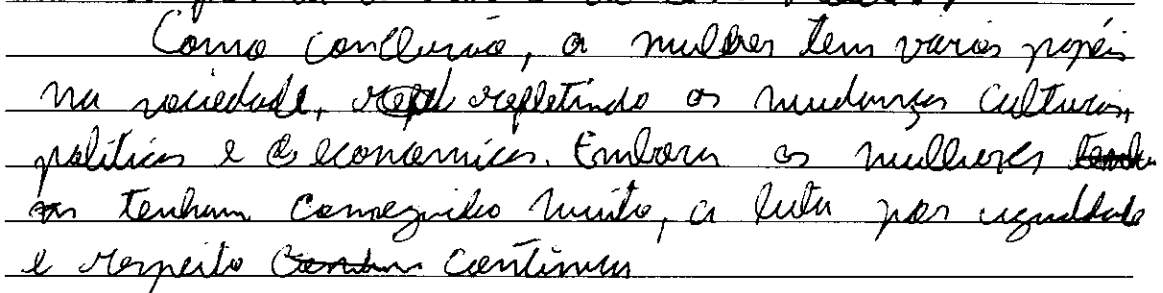 Como conclusão, a mulher tem varios papéis
na sociedade, refletindo as mudanças culturais,
politicas e economicas. Embora as mulheres
tenham conseguido muito, a luta por igualdade
e respeito continua